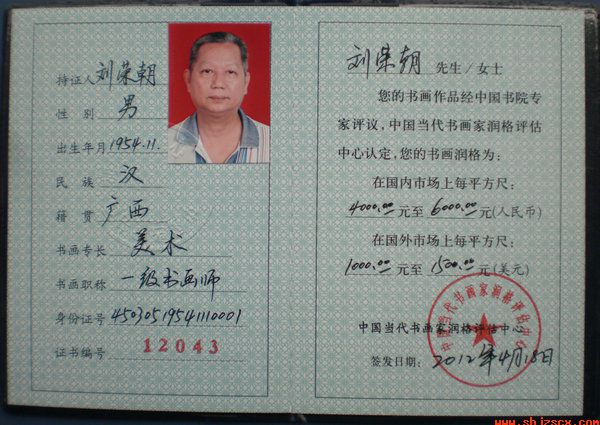 持证人 刘荣朝
性 别 男
出生年月 1954.11.
民 族 汉
籍 贯 广西
书画专长 美术
书画职称 一级书画师
身份证号 450305195411110001
证书编号 12043
刘荣朝 先生/女士
您的书画作品经中国书院专
家评议，中国当代书画家润格评估
中心认定，您的书画润格为：
在国内市场上每平方尺：
4000.00 元至 6000.00 元(人民币)
在国外市场上每平方尺：
1000.00 元至 1500.00 元(美元)
中国当代书画家润格评估中心
中国当代书画家润格评估中心
签发日期：2012年4月18日
www.shjzscx.com